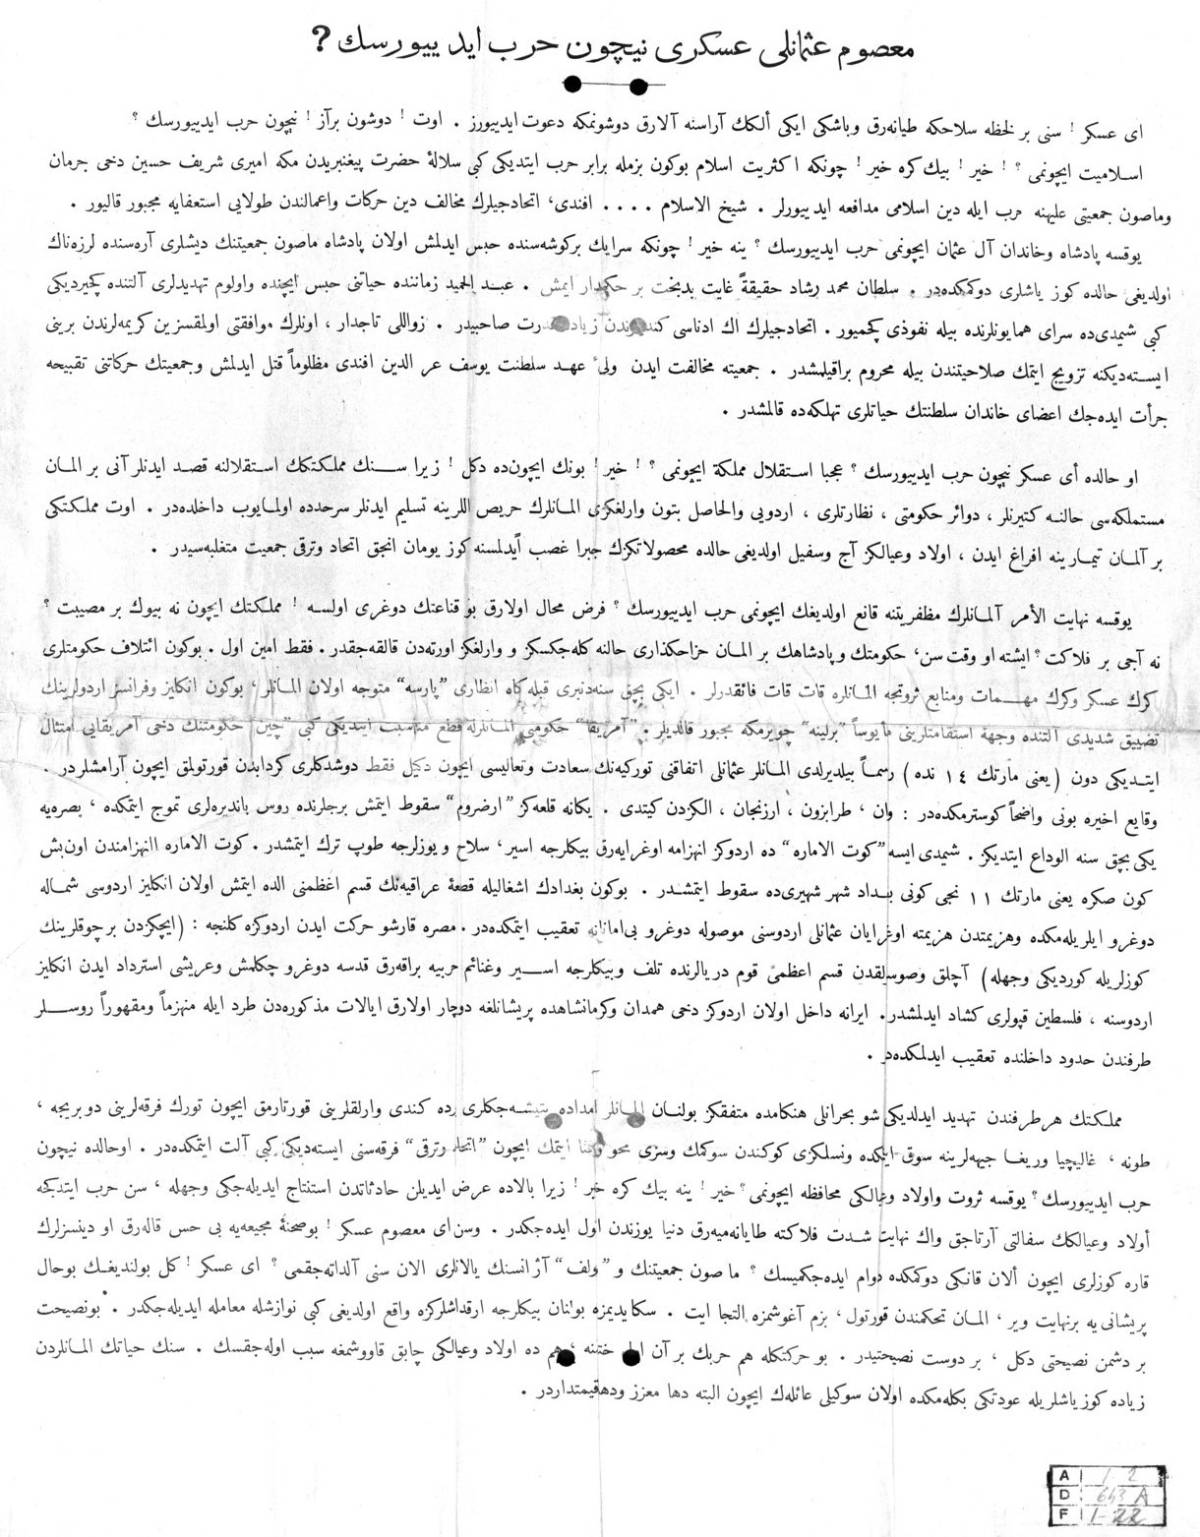 معصوم عثمانلى عسكرى نيچون حرب ايد ييورسك ؟
اى عسكر ! سنى بر لحظه سلاحكه طيانه‌رق وباشكى ايكى ألكك آراسنه آلارق دوشونمكه دعوت ايدييورز . اوت ! دوشون برآز ! نيچون حرب ايدييورسك ؟
اسلاميت ايچونمى ؟ ! خير ! بيك كره خير ! چونكه اكثريت اسلام بوكون بزمله برابر حرب ايتديكى كبى سلالهٔ حضرت پيغنبريدن مكه اميرى شريف حسين دخى جرمان
وماصون جمعيتى عليهنه حرب ايله دين اسلامى مدافعه ايدييورلر . شيخ الاسلام .... افندى، اتحادجيلرك مخالف دين حركات واعمالندن طولايى استعفايه مجبور قاليور .
يوقسه پادشاه وخاندان آل عثمان ايچونمى حرب ايدييورسك ؟ ينه خير ! چونكه سرايك بركوشه‌سنده حبس ايدلمش اولان پادشاه ماصون جمعيتنك ديشلرى آره‌سنده لرزه‌ناك
اولديغى حالده كوز ياشلرى دوكمكده‌در . سلطان محمد رشاد حقيقةً غايت بدبخت بر حكمدار ايمش . عبد الحميد زماننده حياتنى حبس ايچنده واولوم تهديدلرى آلتنده كچيرديكى
كبى شيمدى‌ده سراى همايونلرنده بيله نفوذى كچميور . اتحادجيلرك اك ادناسى كندوندن زياده قدرت صاحبيدر . زواللى تاجدار ، اونلرك موافقتى اولمقسزين كريمه‌لرندن برينى
ايسته‌ديكنه تزويج ايتمك صلاحيتندن بيله محروم براقيلمشدر . جمعيته مخالفت ايدن ولىٔ عهد سلطنت يوسف عز الدين افندى مظلوماً قتل ايدلمش وجمعيتك حركاتنى تقبيحه
جرأت ايده‌جك اعضاى خاندان سلطنتك حياتلرى تهلكه‌ده قالمشدر .
او حالده أى عسكر نيچون حرب ايدييورسك ؟ عجبا استقلال مملكة ايچونمى ؟ ! خير ! بونك ايچون‌ده دكل ! زيرا سنك مملكتكك استقلالنه قصد ايدنلر آنى بر المان
مستملكه‌سى حالنه كتيرنلر ، دوائر حكومتى ، نظارتلرى ، اردويى والحاصل بتون وارلغكزى المانلرك حريص اللرينه تسليم ايدنلر سرحدده اولمايوب داخلده‌در . اوت مملكتكى
بر آلمان تيمارينه افراغ ايدن ، اولاد وعيالكز آج وسفيل اولديغى حالده محصولاتكزك جبرا غصب ايدلمسنه كوز يومان انجق اتحاد وترقى جمعيت متغلبه‌سيدر .
يوقسه نهايت الأمر آلمانلرك مظفريتنه قانع اولديغك ايچونمى حرب ايدييورسك ؟ فرض محال اولارق بو قناعتك دوغرى اولسه ! مملكتك ايچون نه بيوك بر مصيبت ؟
نه آجى بر فلاكت ؟ ايشته او وقت سن، حكومتك وپادشاهك بر المان خراجكذارى حالنه كله‌جكسكز و وارلغكز اورته‌دن قالقه‌جقدر . فقط امين اول . بوكون ائتلاف حكومتلرى
كرك عسكر وكرك مهمات ومنابع ثروتجه المانلره قات قات فائقدرلر . ايكى بچق سنه‌دنبرى قبله‌كاه انظارى ”پارسه“ متوجه اولان المانلر ، بوكون انكليز وفرانسز اردولرينك
تضييق شديدى آلتنده وجههٔ استقامتلرينى مأيوساً ”برلينه“ چويرمكه مجبور قالديلر . ”آمريقا“ حكومتى المانلرله قطع مناسبت ايتديكى كبى ”چين“ حكومتنك دخى آمريقايى امتثال
ايتديكى دون ( يعنى مارتك ١٤ نده ) رسماً بيلديرلدى المانلر عثمانلى اتفاقنى توركيه‌نك سعادت وتعاليسى ايچون دكيل فقط دوشدكلرى كردابدن قورتولمق ايچون آرامشلردر .
وقايع اخيره بونى واضحاً كوسترمكده‌در : وان ، طرابزون ، ارزنجان ، الكزدن كيتدى . يكانه قلعه‌كز ”ارضروم“ سقوط ايتمش برجلرنده روس بانديره‌لرى تموج ايتمكده ، بصره‌يه
يكى بچق سنه الوداع ايتديكز . شيمدى ايسه ”كوت الاماره“ ده اردوكز انهزامه اوغرايه‌رق بيكلرجه اسير ، سلاح و يوزلرجه طوپ ترك ايتمشدر . كوت الاماره انهزامندن اون‌بش
كون صكره يعنى مارتك ١١ نجى كونى بغداد شهر شهيرى‌ده سقوط ايتمشدر . بوكون بغدادك اشغاليله قطعهٔ عراقيه‌نك قسم اعظمنى الده ايتمش اولان انكليز اردوسى شماله
دوغرو ايلريله‌مكده وهزيمتدن هزيمته اوغرايان عثمانلى اردوسنى موصوله دوغرو بى‌امانانه تعقيب ايتمكده‌در . مصره قارشو حركت ايدن اردوكزه كلنجه : (ايچكزدن بر چوقلرينك
كوزلريله كورديكى وجهله) آچلق وصوسزلقدن قسم اعظمى قوم دريالرنده تلف وبيكلرجه اسير وغنائم حربيه براقه‌رق قدسه دوغرو چكلمش وعريشى استرداد ايدن انكليز
اردوسنه ، فلسطين قپولرى كشاد ايدلمشدر . ايرانه داخل اولان اردوكز دخى همدان وكرمانشاهده پريشانلغه دوچار اولارق ايالات مذكوره‌دن طرد ايله منهزماً ومقهوراً روسلر
طرفندن حدود داخلنده تعقيب ايدلمكده‌در .
مملكتك هر طرفندن تهديد ايدلديكى شو بحرانلى هنكامده متفقكز بولنان المانلر امداده يتيشه‌جكلرى يرده كندى وارلقلرينى قورتارمق ايچون تورك فرقه‌لرينى دوبريجه ،
طونه ، غاليچيا وريغا جبهه‌لرينه سوق ايتمكده ونسلكزى كوكندن سوكمك وسزى محو وافنا ايتمك ايچون ”اتحاد وترقى“ فرقه‌سنى ايسته‌ديكى كبى آلت ايتمكده‌در . اوحالده نيچون
حرب ايدييورسك ؟ يوقسه ثروت واولاد وعيالكى محافظه ايچونمى ؟ خير ! ينه بيك كره خير ! زيرا بالاده عرض ايديلن حادثاتدن استنتاج ايديله‌جكى وجهله ، سن حرب ايتدكجه
أولاد وعيالكك سفالتى آرتاجق واك نهايت شدت فلاكته طايانه‌ميه‌رق دنيا يوزندن اول ايده‌جكدر . وسن‌اى معصوم عسكر ! بوصحنهٔ مجيعه‌يه بى حس قاله‌رق او دينسزلرك
قاره كوزلرى ايچون ألان قانكى دوكمكده دوام ايده‌جكميسك ؟ ماصون جمعيتنك و ”ولف“ آژانسنك يالانلرى الان سنى آلداته‌جقمى ؟ اى عسكر ! كل بولنديغك بوحال
پريشانى‌يه برنهايت وير ، المان تحكمندن قورتول ، بزم آغوشمزه التجا ايت . سكا يديمزده بولنان بيكلرجه ارقداشلركزه واقع اولديغى كبى نوازشله معامله ايديله‌جكدر . بونصيحت
بر دشمن نصيحتى دكل ، بر دوست نصيحتيدر . بو حركتكله هم حربك بر آن اول ختمنه ، هم ده اولاد وعيالكى چابق قاووشمغه سبب اوله‌جقسك . سنك حياتك المانلردن
زياده كوز ياشلريله عودتكى بكله‌مكده اولان سوكيلى عائله‌ك ايچون البته دها معزز ودهاقيمتداردر .
A 1 2
D 643 A
F 1-22